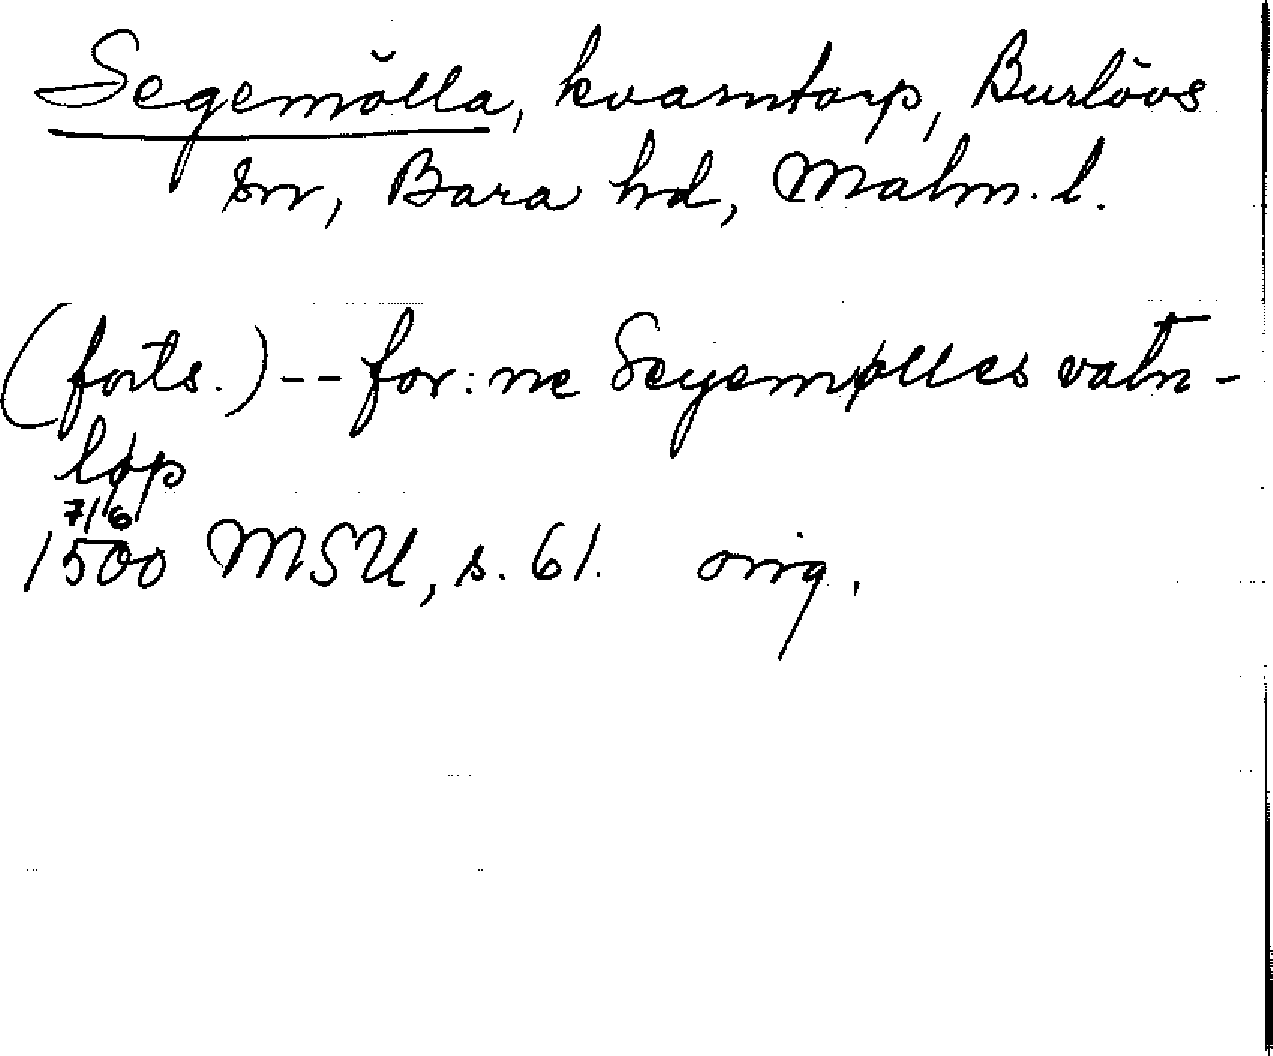 Segemölla, kvarntorp, Burlövs
sn, Bara hd, Malm. l.
(forts.) -- for:ne Seyemølles vatn-
løp
7/6
1500 MSU, s. 61. orig.